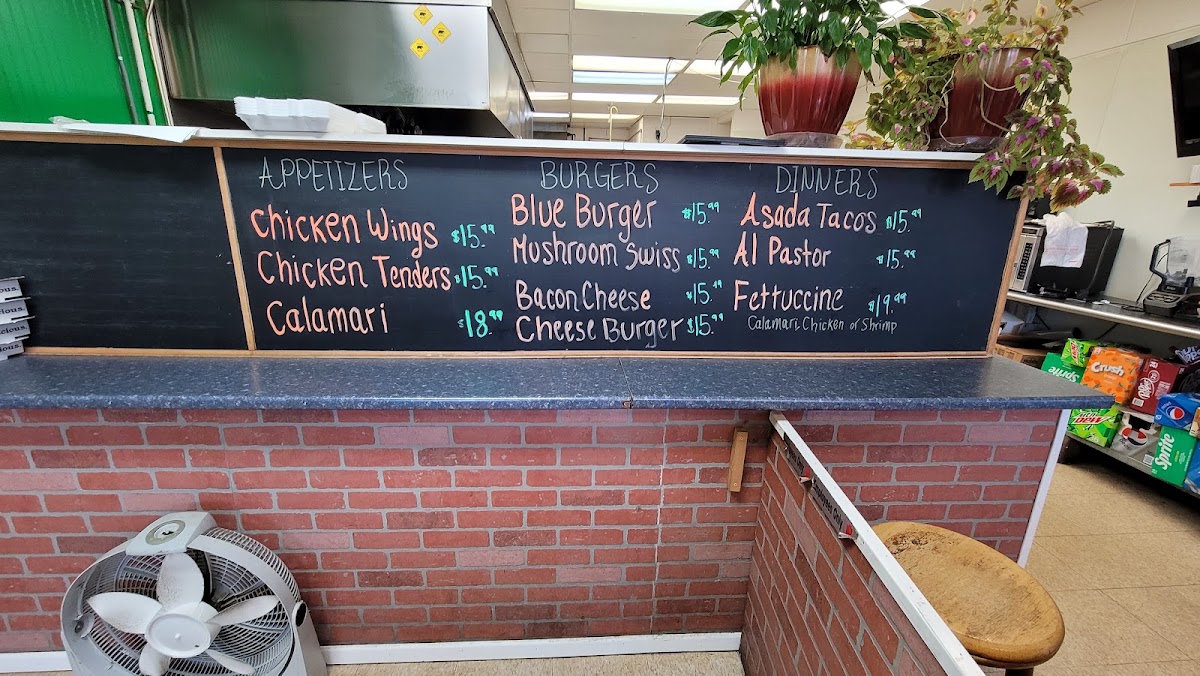 APPETIZERS
Chicken Wings $15.99
Chicken Tenders $15.99
Calamari $18.99
BURGERS
Blue Burger $15.99
Mushroom Swiss $15.99
Bacon Cheese $15.99
Cheese Burger $15.99
DINNERS
Asada Tacos $15.99
Al Pastor $15.99
Fettuccine $19.99
Calamari Chicken or Shrimp
Sprite
Crush
Sprite